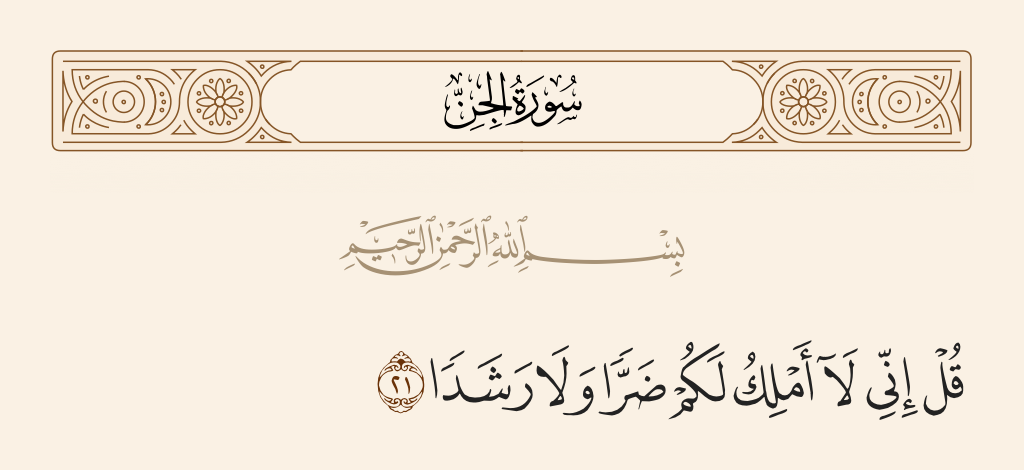 سُورَةُ الجِنِّ
بِسْمِ ٱللَّهِ ٱلرَّحْمَٰنِ ٱلرَّحِيمِ
قُلْ إِنِّي لَآ أَمْلِكُ لَكُمْ ضَرًّا وَلَا رَشَدًا ٢١